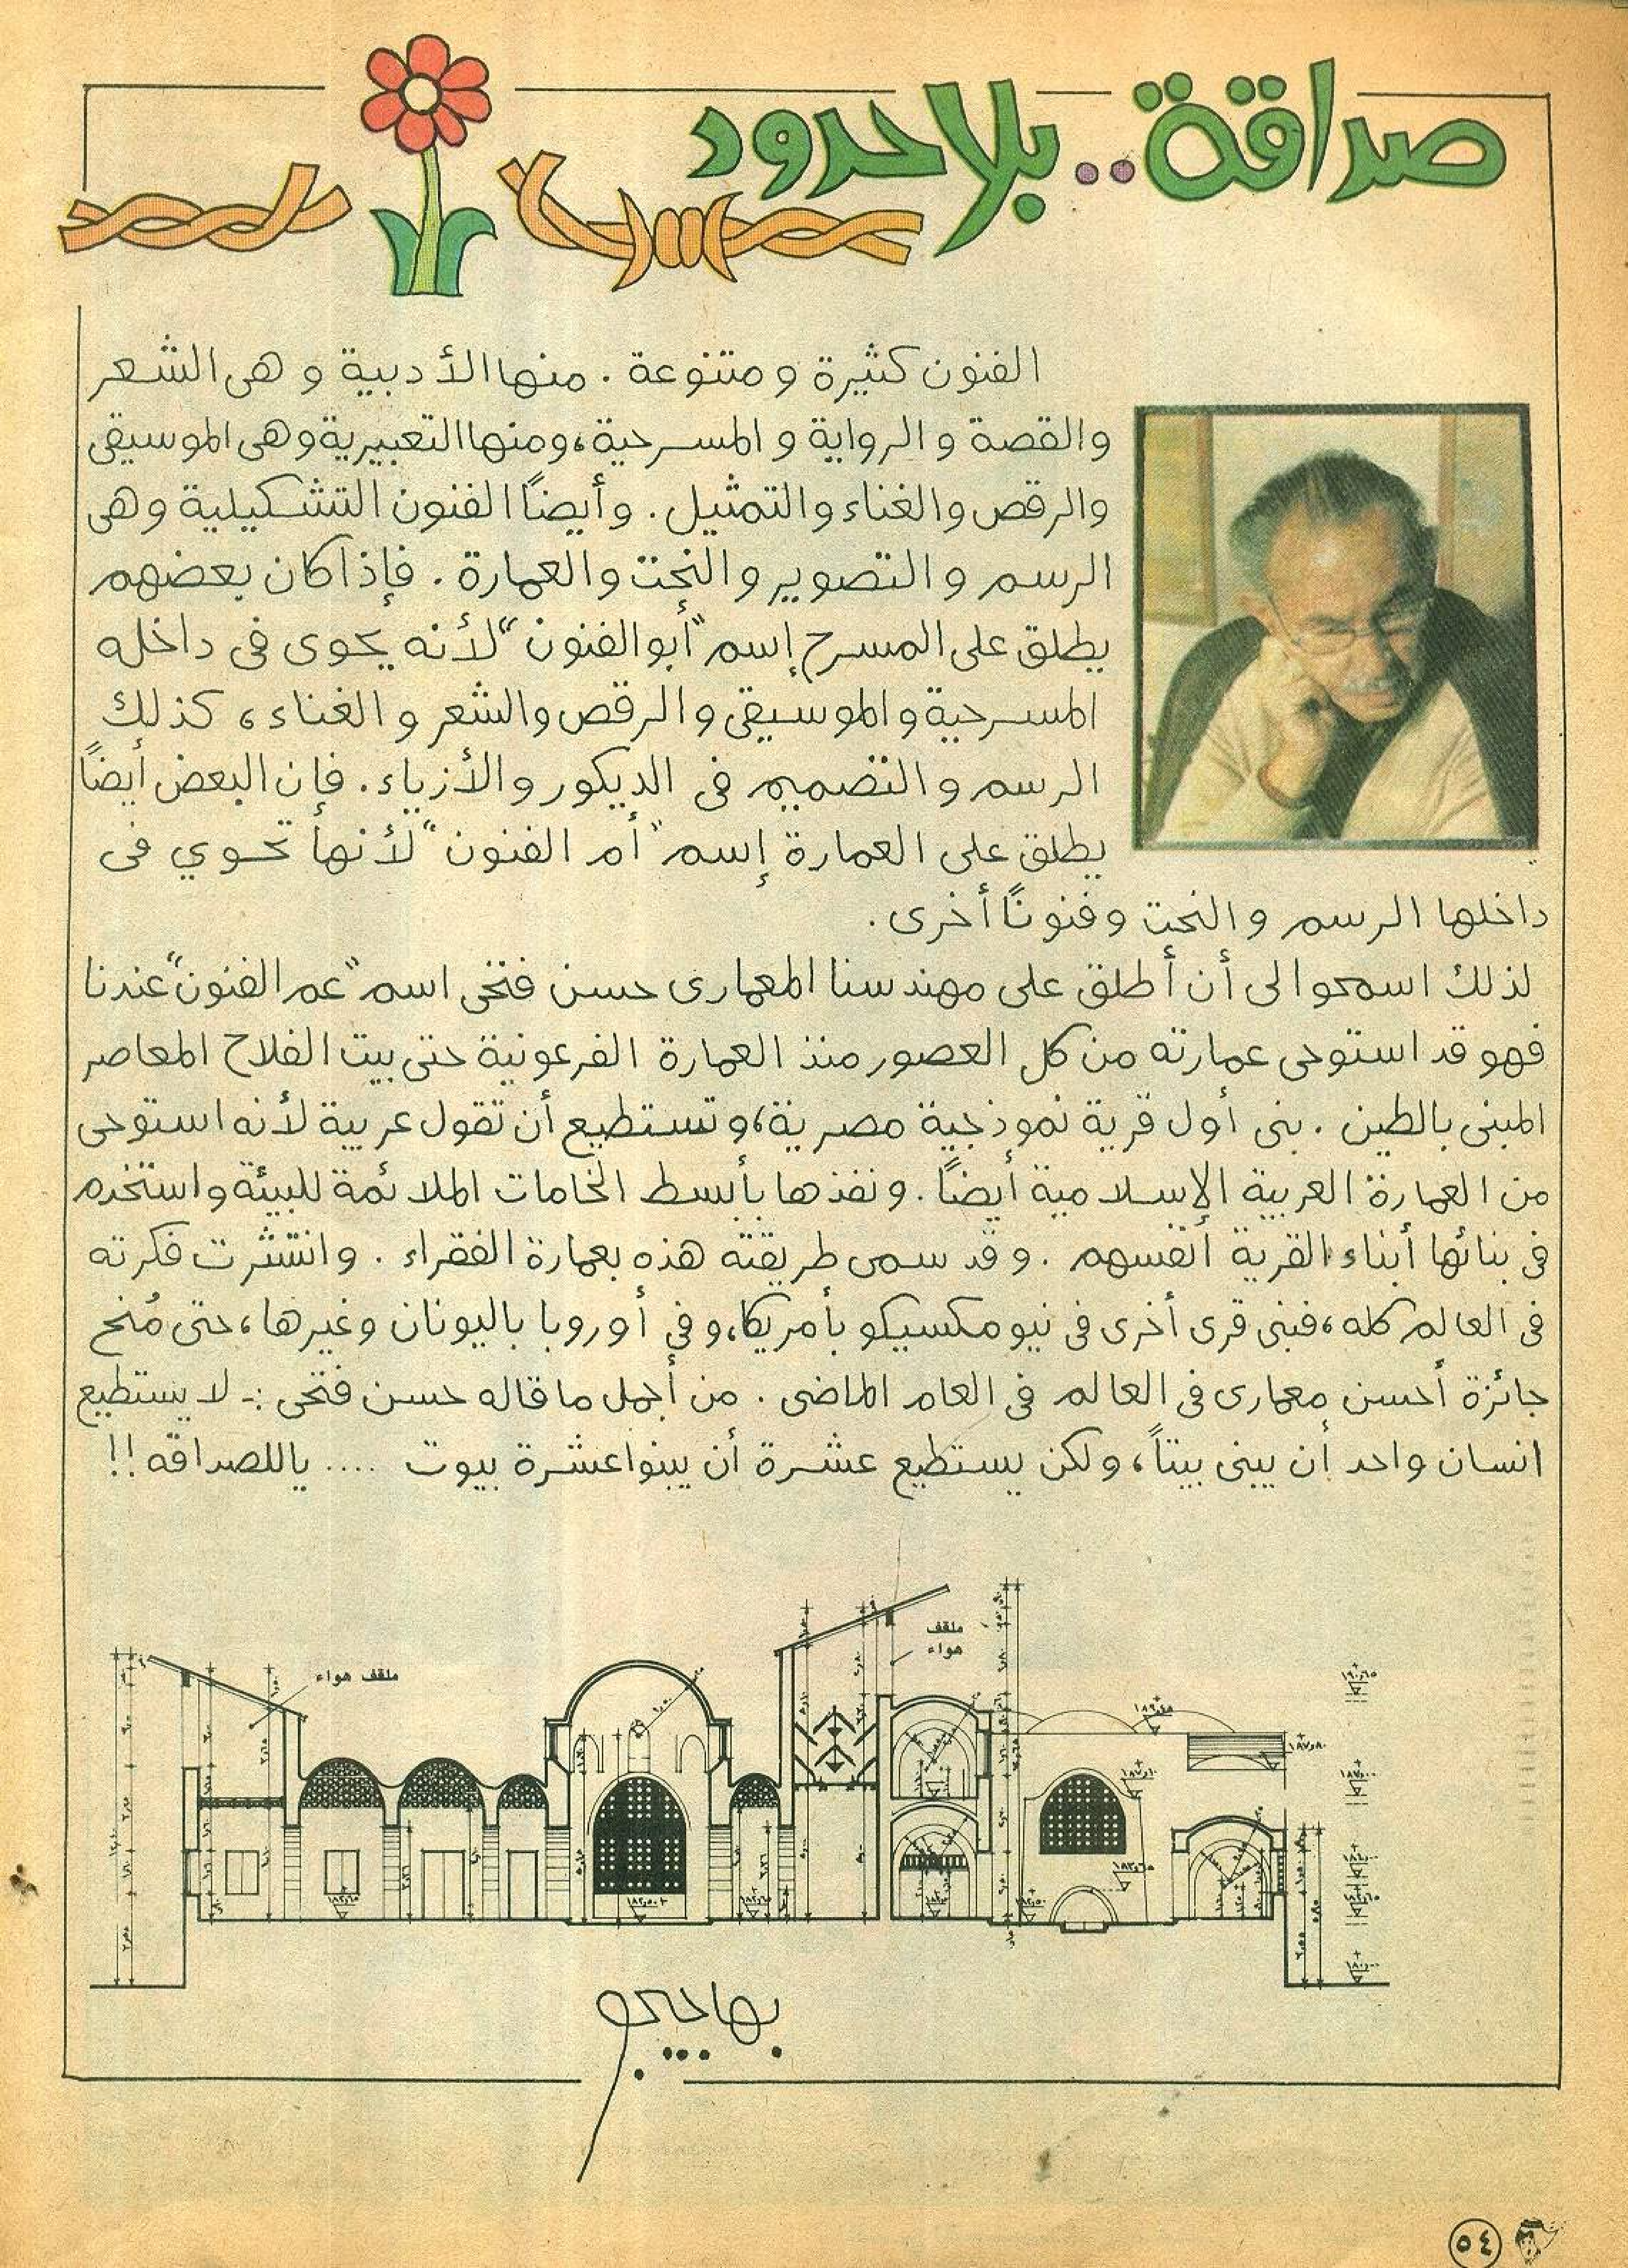 صداقة.. بلا حدود
الفنون كثيرة و متنوعة . منها الأدبية و هى الشعر
والقصة و الرواية و المسرحية، ومنها التعبيرية وهى الموسيقى
والرقص والغناء والتمثيل . وأيضاً الفنون التشكيلية وهى
الرسم و التصوير و النحت والعمارة . فإذا كان بعضهم
يطلق على المسرح إسم "أبو الفنون" لأنه يحوى فى داخله
المسرحية و الموسيقى و الرقص والشعر و الغناء ، كذلك
الرسم و التصميم فى الديكور و الأزياء . فإن البعض أيضاً
يطلق على العمارة إسم "أم الفنون" لأنها تحوي فى
داخلها الرسم و النحت و فنوناً أخرى .
لذلك اسمحوا لى أن أطلق على مهندسنا المعمارى حسن فتحى اسم "عم الفنون" عندنا
فهو قد استوحى عمارته من كل العصور منذ العمارة الفرعونية حتى بيت الفلاح المعاصر
المبنى بالطين . بنى أول قرية نموذجية مصرية، و تستطيع أن تقول عربية لأنه استوحى
من العمارة العربية الإسلامية أيضاً . و نفذها بأبسط الخامات الملائمة للبيئة و استخدم
فى بنائها أبناء القرية أنفسهم . و قد سمى طريقته هذه بعمارة الفقراء . وانتشرت فكرته
فى العالم كله ، فبنى قرى أخرى فى نيو مكسيكو بأمريكا، و فى أوروبا باليونان وغيرها ، حتى مُنح
جائزة أحسن معمارى فى العالم فى العام الماضى . من أجمل ما قاله حسن فتحى :- لا يستطيع
انسان واحد أن يبنى بيتاً ، ولكن يستطيع عشرة أن يبنوا عشرة بيوت .... ياللصداقه !!
ملقف
هواء
ملقف هواء
١٩٠٫٦٥
١٨٩٫٤٥
١٨٧٫٨٠
١٨٧٫٠٠
١٨٧٫١٠
١٨٣٫٦٥
بهاجيجى
٥٤